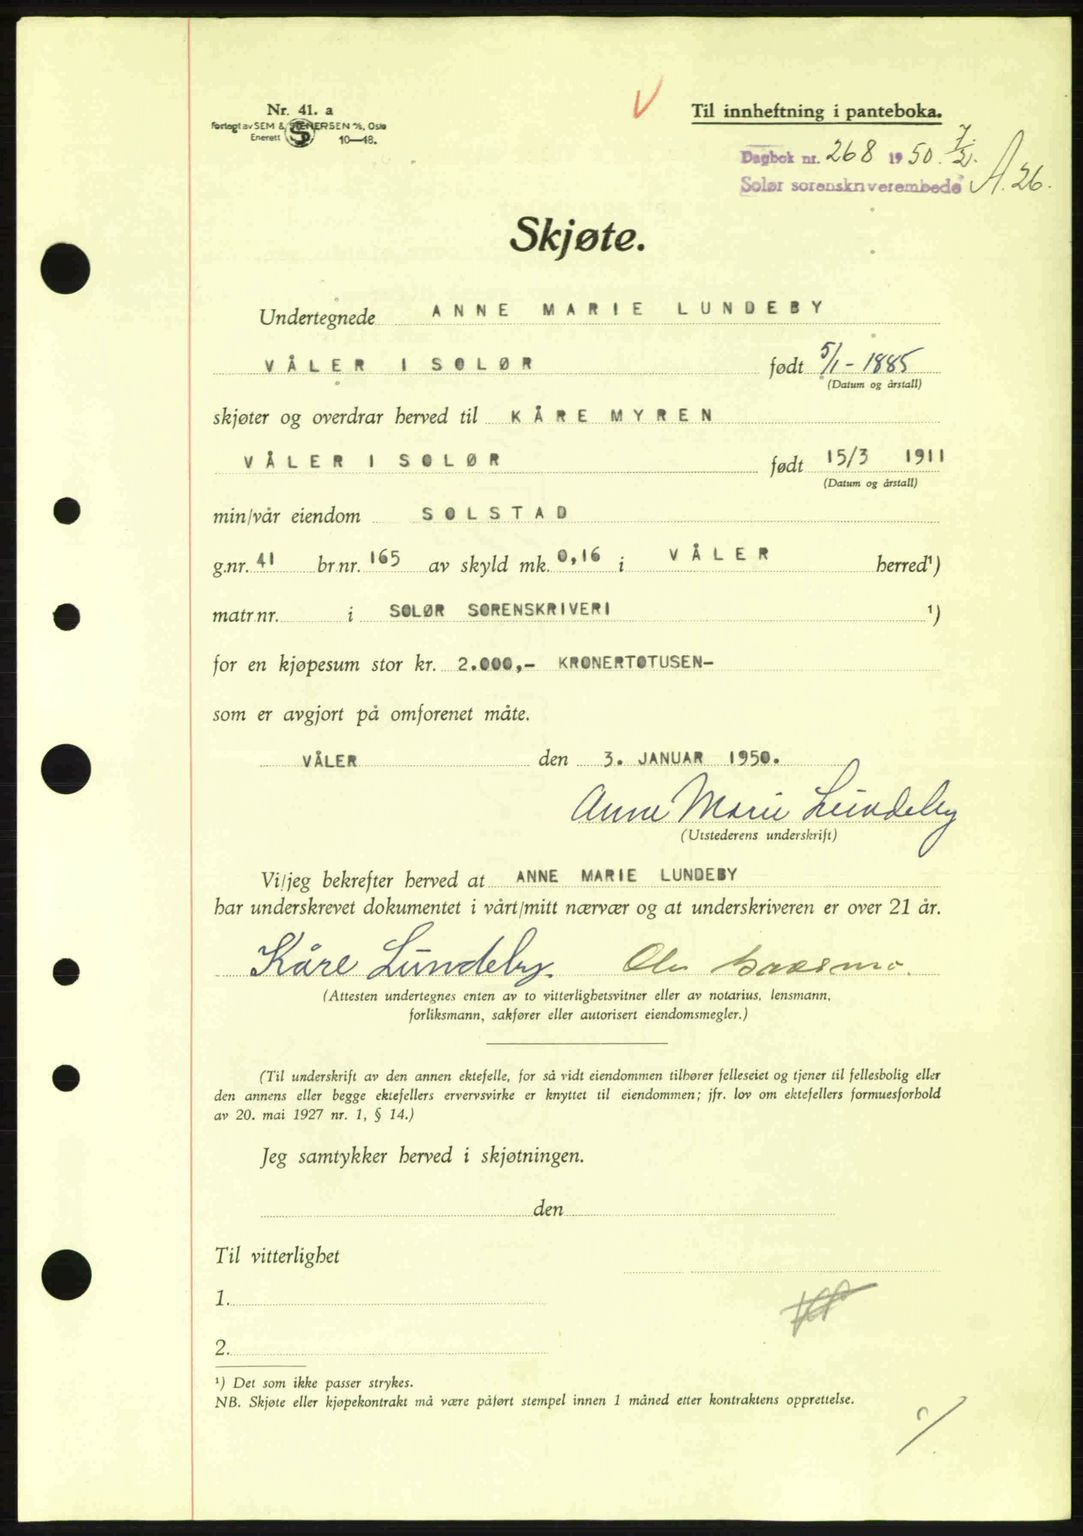 Nr. 41. a
Forlagt av SEM & STENERSEN A/S, Oslo
Enerett 10—48.
Til innheftning i panteboka.
Dagbok nr. 268 1950. 7/2.
Solør sorenskriverembede A. 26.
Skjøte.
Undertegnede ANNE MARIE LUNDEBY
VÅLER I SOLØR født 5/1 - 1885
(Datum og årstall)
skjøter og overdrar herved til KÅRE MYREN
VÅLER I SOLØR født 15/3 1911
(Datum og årstall)
min/vår eiendom SOLSTAD
g.nr. 41 br.nr. 165 av skyld mk. 0,16 i VÅLER herred¹)
matr.nr. i SOLØR SORENSKRIVERI ¹)
for en kjøpesum stor kr. 2.000,- KRONERTOTUSEN-
som er avgjort på omforenet måte.
VÅLER den 3. JANUAR 1950.
Anne Marie Lundeby
(Utstederens underskrift)
Vi/jeg bekrefter herved at ANNE MARIE LUNDEBY
har underskrevet dokumentet i vårt/mitt nærvær og at underskriveren er over 21 år.
Kåre Lundeby.
(Attesten undertegnes enten av to vitterlighetsvitner eller av notarius, lensmann,
forliksmann, sakfører eller autorisert eiendomsmegler.)
(Til underskrift av den annen ektefelle, for så vidt eiendommen tilhører felleseiet og tjener til fellesbolig eller
den annens eller begge ektefellers ervervsvirke er knyttet til eiendommen; jfr. lov om ektefellers formuesforhold
av 20. mai 1927 nr. 1, § 14.)
Jeg samtykker herved i skjøtningen.
den
Til vitterlighet
1.
2.
¹) Det som ikke passer strykes.
NB. Skjøte eller kjøpekontrakt må være påført stempel innen 1 måned etter kontraktens opprettelse.